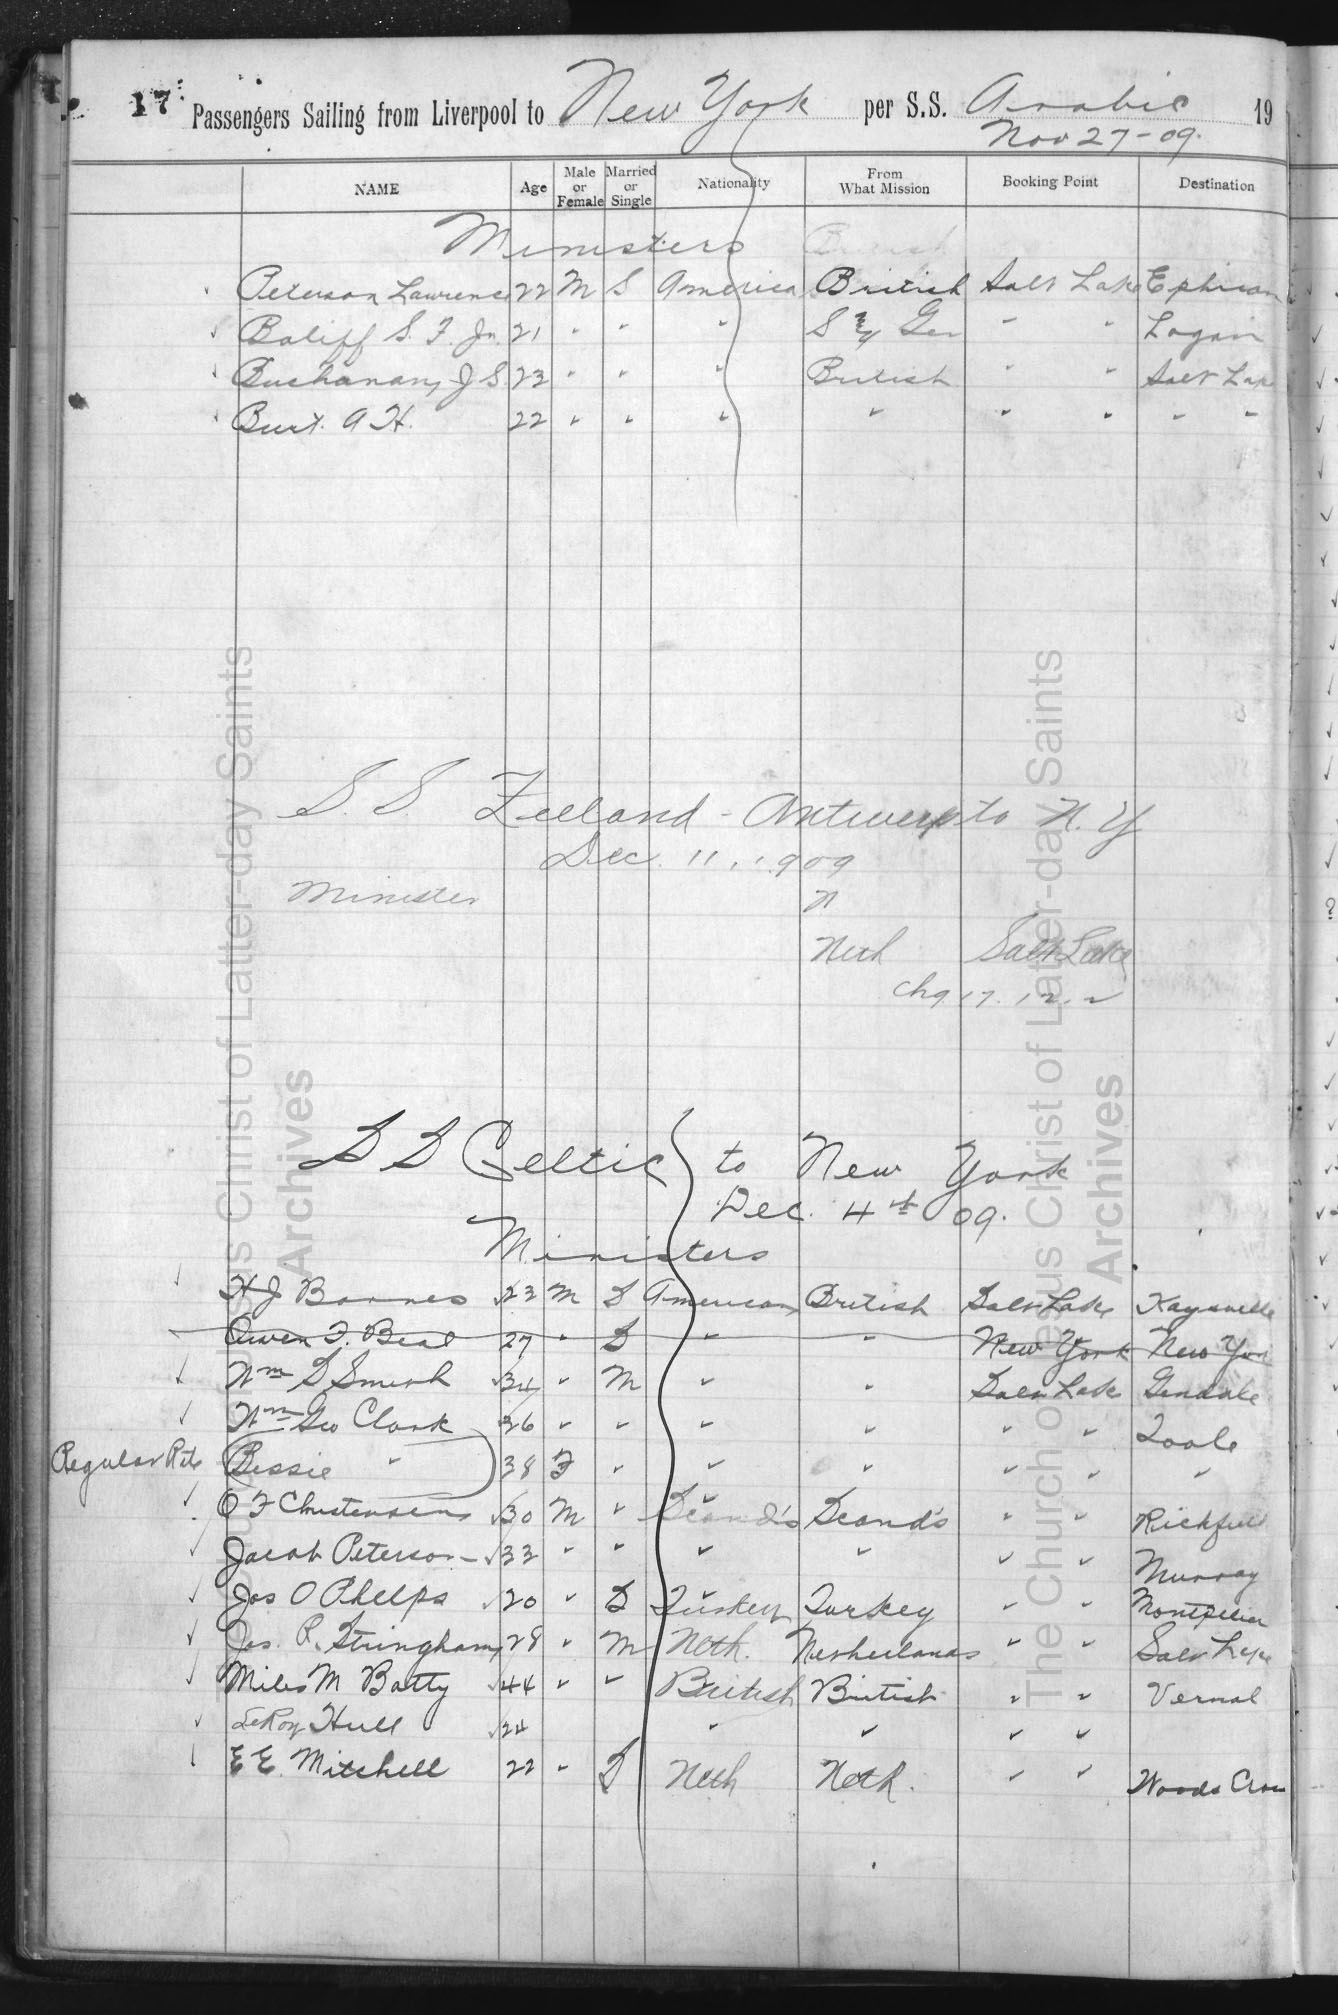 17 Passengers Sailing from Liverpool to New York per S.S. Arabic 19
Nov 27-09.
NAME Age Male or Female Married or Single Nationality From What Mission Booking Point Destination
Ministers British
Peterson Lawrence 22 M S America British Salt Lake Ephriam
Baliff S. F. Jr. 21 " " " S & Ger " " Logan
Buchanan, J S. 23 " " " British " " Salt Lake
Burt. A H. 22 " " " " " " " "
S. S. Zeeland - Antwerp to N. Y
Dec. 11, 1909
Minister N
Neth Salt Lake
chg 17.12.2
S S Celtic to New York
Dec. 4th 09.
Ministers
H J Barnes 23 M S American British Salt Lake Kaysville
Owen F. Beal 27 " S " " New York New York
Wm S Smith 34 " M " " Salt Lake Glendale
Wm Geo Clark 36 " " " " " " Toole
Regular Rate Bessie " 38 F " " " " " "
O F Christensen 30 M " " Scand's Scand's " " Richfield
Jacob Peterson 33 " " " " " " Murray
Jos O Phelps 20 " S Turkey Turkey " " Montpelier
Jas. R. Stringham 28 " M Neth. Netherlands " " Salt Lake
Miles M Batty 44 " " British British " " Vernal
LeRoy Hull 24 " " " "
E E. Mitchell 22 " S Neth Neth. " " Woods Cross
The Church of Jesus Christ of Latter-day Saints
Archives
The Church of Jesus Christ of Latter-day Saints
Archives